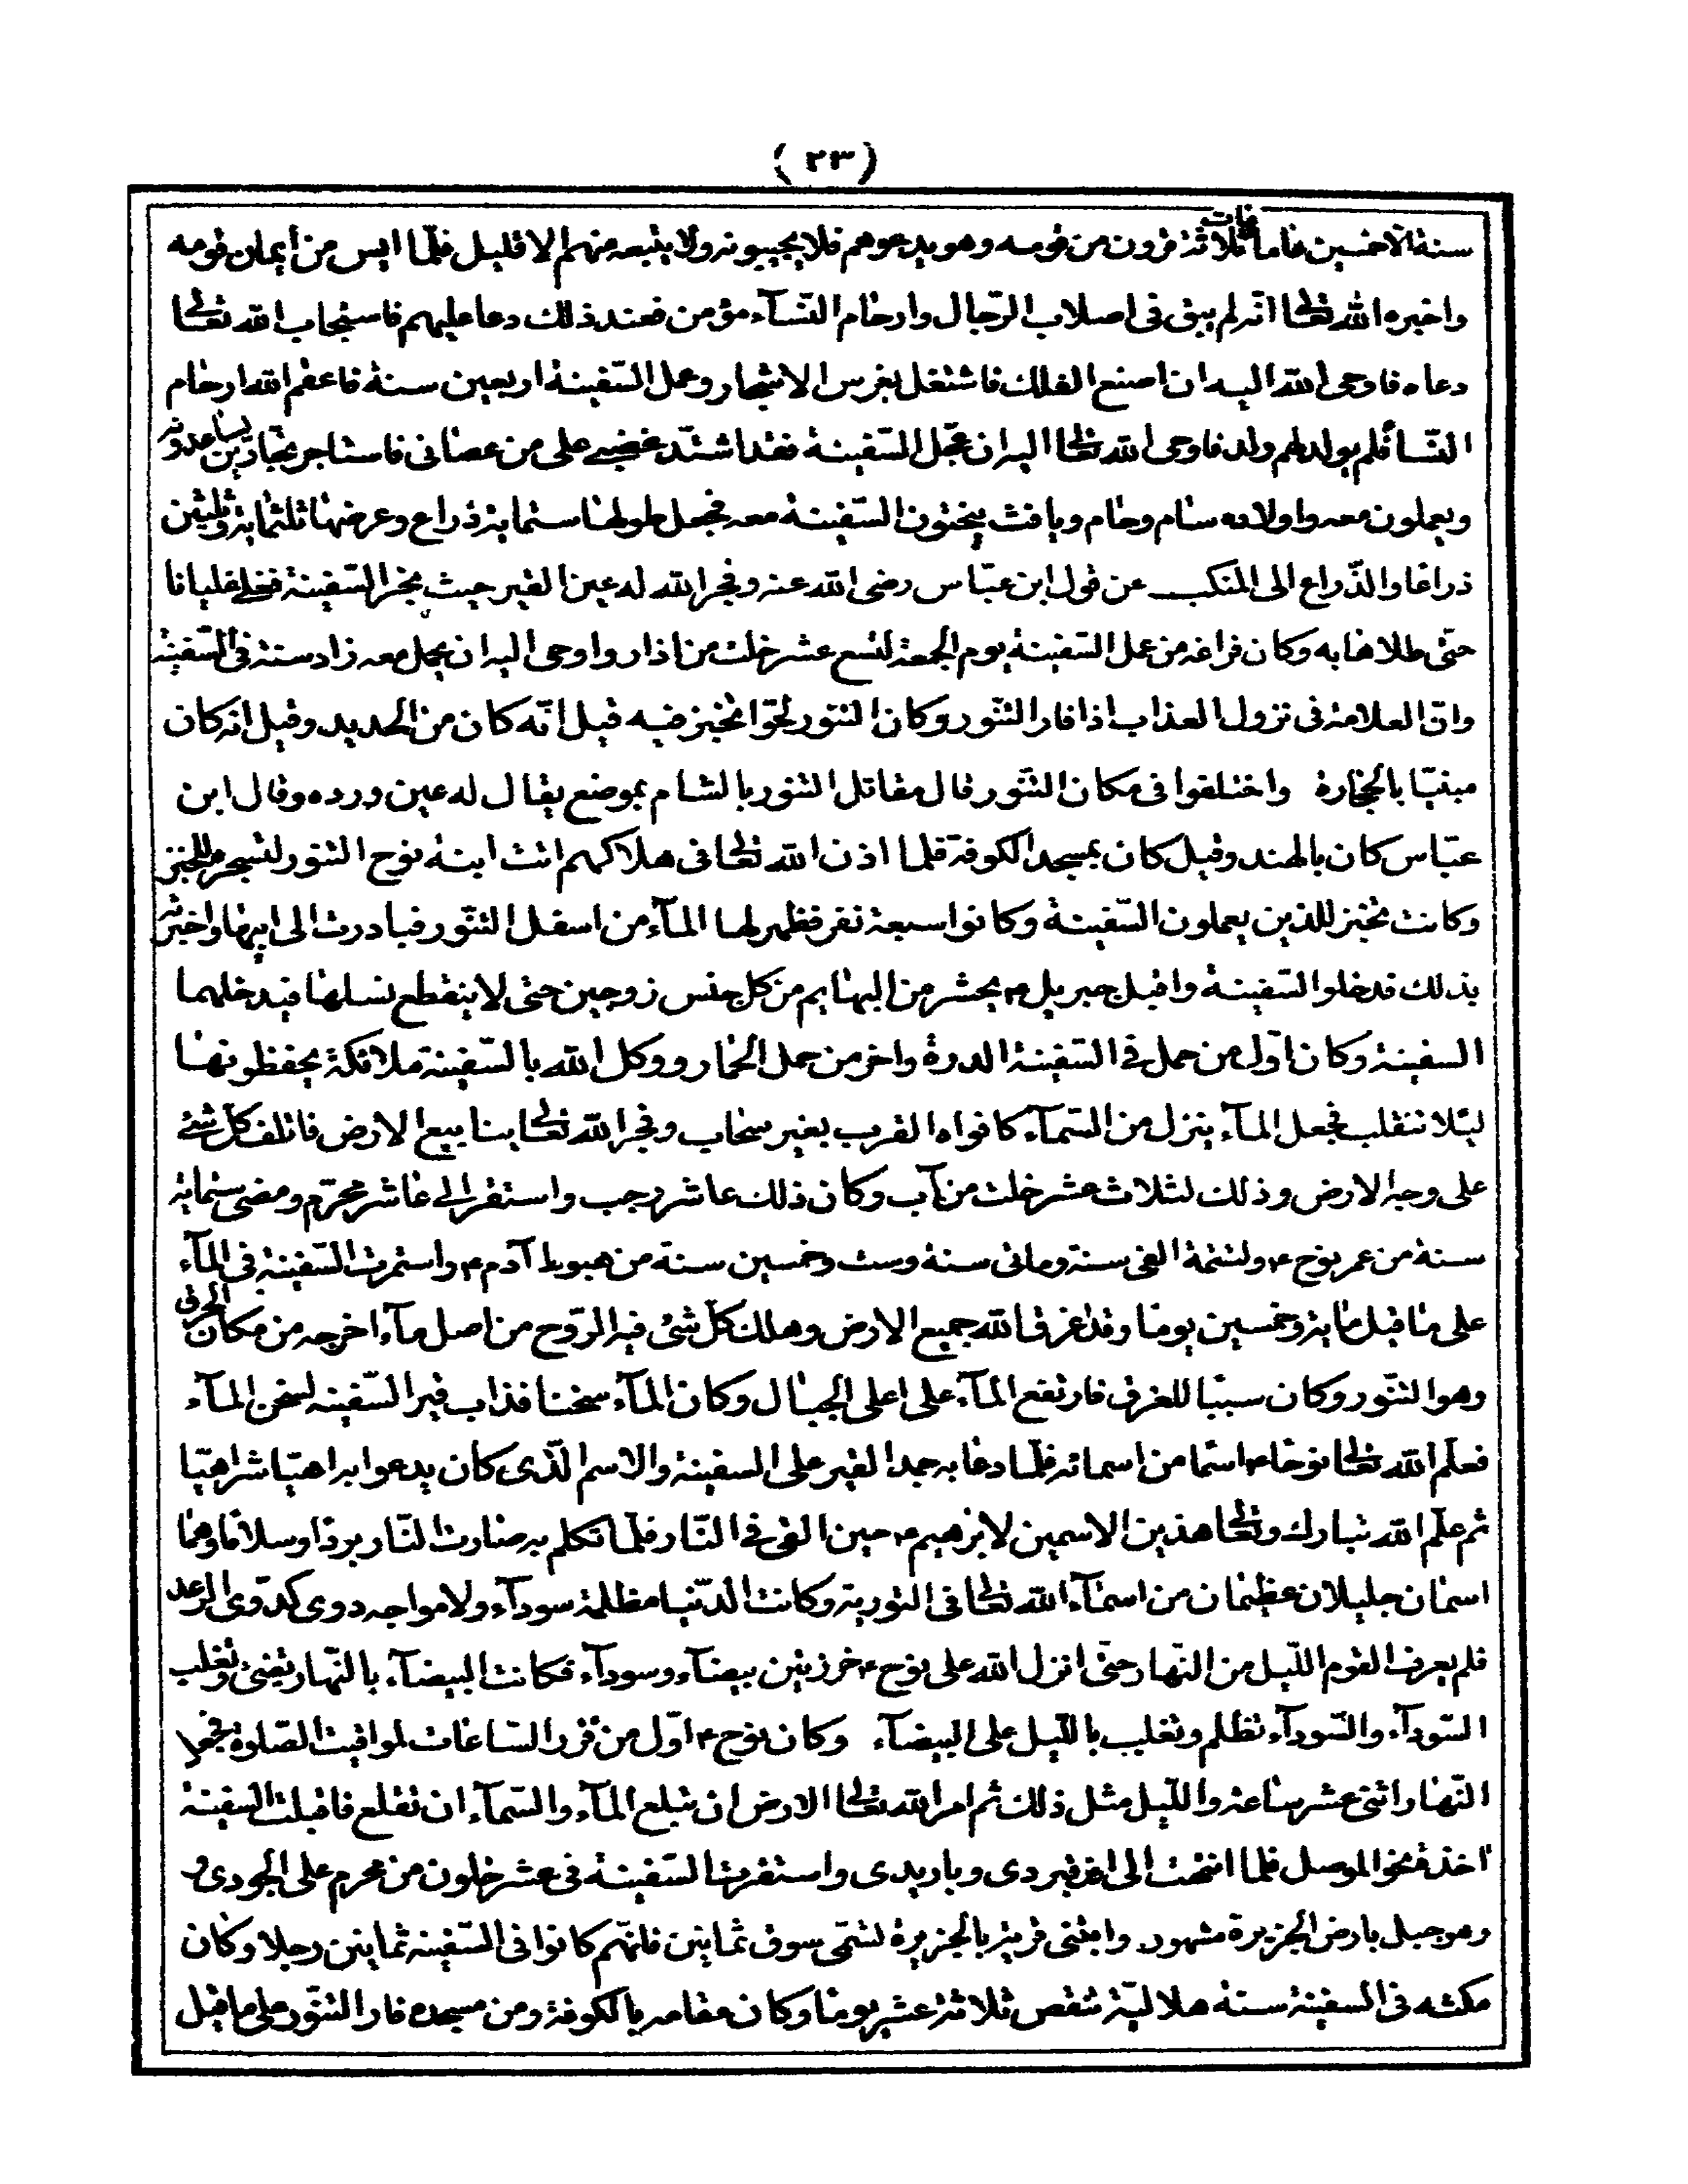 ( ٢٣ )
سنة الا خمسين فمات ثلاثة قرون من قومه وهو يدعوهم فلا يجيبونه ولا يتبعه منهم الا قليل فلما ايس من ايمان قومه
واخبره الله تعالى انه لم يبق فى اصلاب الرّجال وارحام النّسآء مؤمن فعند ذلك دعا عليهم فاستجاب الله تعالى
دعاه فاوحى الله اليه ان اصنع الفلك فاشتغل بغرس الاشجار وعمل السّفينة اربعين سنة فاعقم الله ارحام
النّسآ فلم يولد لهم ولد فاوحى الله تعالى اليه ان عجّل السّفينة فقد اشتدّ غضبى على من عصانى فاستاجر نجّارين يساعدونه
ويعملون معه واولاده سام وحام ويافث ينحتون السّفينة معه فجعل طولها ستماية ذراع وعرضها ثلثماية وثلثين
ذراعا والذّراع الى المنكب عن قول ابن عبّاس رضى الله عنه وفجر الله له عين القير حيث ينجر السّفينة فغلى غليانا
حتّى طلاها به وكان فراغه من عمل السّفينة يوم الجمعة لتسع عشر خلت من اذار واوحى اليه ان يحمل معه زاد سنة فى السّفينة
وانّ العلامة فى نزول العذاب اذا فار التنّور وكان التنور لحوّا تخبز فيه قيل انّه كان من الحديد وقيل انه كان
مبنيّا بالحجارة واختلفوا فى مكان التنّور قال مقاتل التنور بالشام بموضع يقال له عين ورده وقال ابن
عبّاس كان بالهند وقيل كان بمسجد الكوفة فلما اذن الله تعالى فى هلاكهم اتت ابنة نوح التنور لتسجره للخبز
وكانت تخبز للذين يعملون السّفينة وكانوا سبعة نفر فظهر لها المآء من اسفل التنّور فبادرت الى ابيها واخبرته
بذلك فدخلوا السّفينة واقبل جبريل ٤م يحشر من البهايم من كل جنس زوجين حتى لا ينقطع نسلها فيدخلهما
السفينة وكان اوّل من حمل فى السّفينة الدرة واخر من حمل الحمار ووكل الله بالسّفينة ملائكة يحفظونها
لئلا تنقلب فجعل المآء ينزل من السّمآء كافواه القرب بغير سحاب وفجر الله تعالى ينابيع الارض فاتلف كلّ شئ
على وجه الارض وذلك لثلاث عشر خلت من آب وكان ذلك عاشر رجب واستقر الى عاشر محرّم ومضى ستماية
سنة من عمر نوح ٤م ولتتمة الفى سنة ومائتى سنة وست وخمسين سنة من هبوط آدم ٤م واستمرت السّفينة فى المآء
على ما قيل ماية وخمسين يوما وقد غرق الله جميع الارض وهلك كلّ شئ فيه الرّوح من اصل مآء اخرجه من مكان الحرق
وهو التنّور وكان سببًا للغرق فارتفع المآء على اعلى الجبال وكان المآء سخنا فذاب قير السّفينه لسخن المآء
فعلّم الله تعالى نوحا ٤م اسما من اسمائه فلمّا دعا به جمد القير على السفينة والاسم الّذى كان يدعوا به اهيّا شراهيّا
ثم علّم الله تبارك وتعالى هذين الاسمين لابرهيم ٤م حين القى فى النّار فلمّا تكلم به صارت النّار بردًا وسلامًا وهما
اسمان جليلان عظيمان من اسمآء الله تعالى فى التورية وكانت الدّنيا مظلمة سودآء ولامواجه دوى كدوّى الرعد
فلم يعرف القوم اللّيل من النهار حتّى انزل الله على نوح ٤م خرزتين بيضآء وسودآء فكانت البيضآء بالنّهار تضئ وتغلب
السّودآء والسّودآء تظلم وتغلب باللّيل على البيضآء وكان نوح ٤م اوّل من قرر السّاعات لمواقيت الصّلوة فجعل
النّهار اثنى عشر ساعة واللّيل مثل ذلك ثم امر الله تعالى الارض ان تبلع المآء والسّمآء ان تقلع فاقبلت السفينة
اخذة نحو الموصل فلما انتهت الى قردى وباربدى واستقرت السّفينة فى عشر خلون من محرم على الجودى
وهو جبل بارض الجزيرة مشهور وابتنى قرية بالجزيرة تسمّى سوق ثمانين فانّهم كانوا فى السّفينه ثمانين رجلا وكان
مكثه فى السفينة سنة هلاليّة تنقص ثلاثة عشر يوما وكان مقامه بالكوفة ومن مسجده فار التنّور على ما قيل